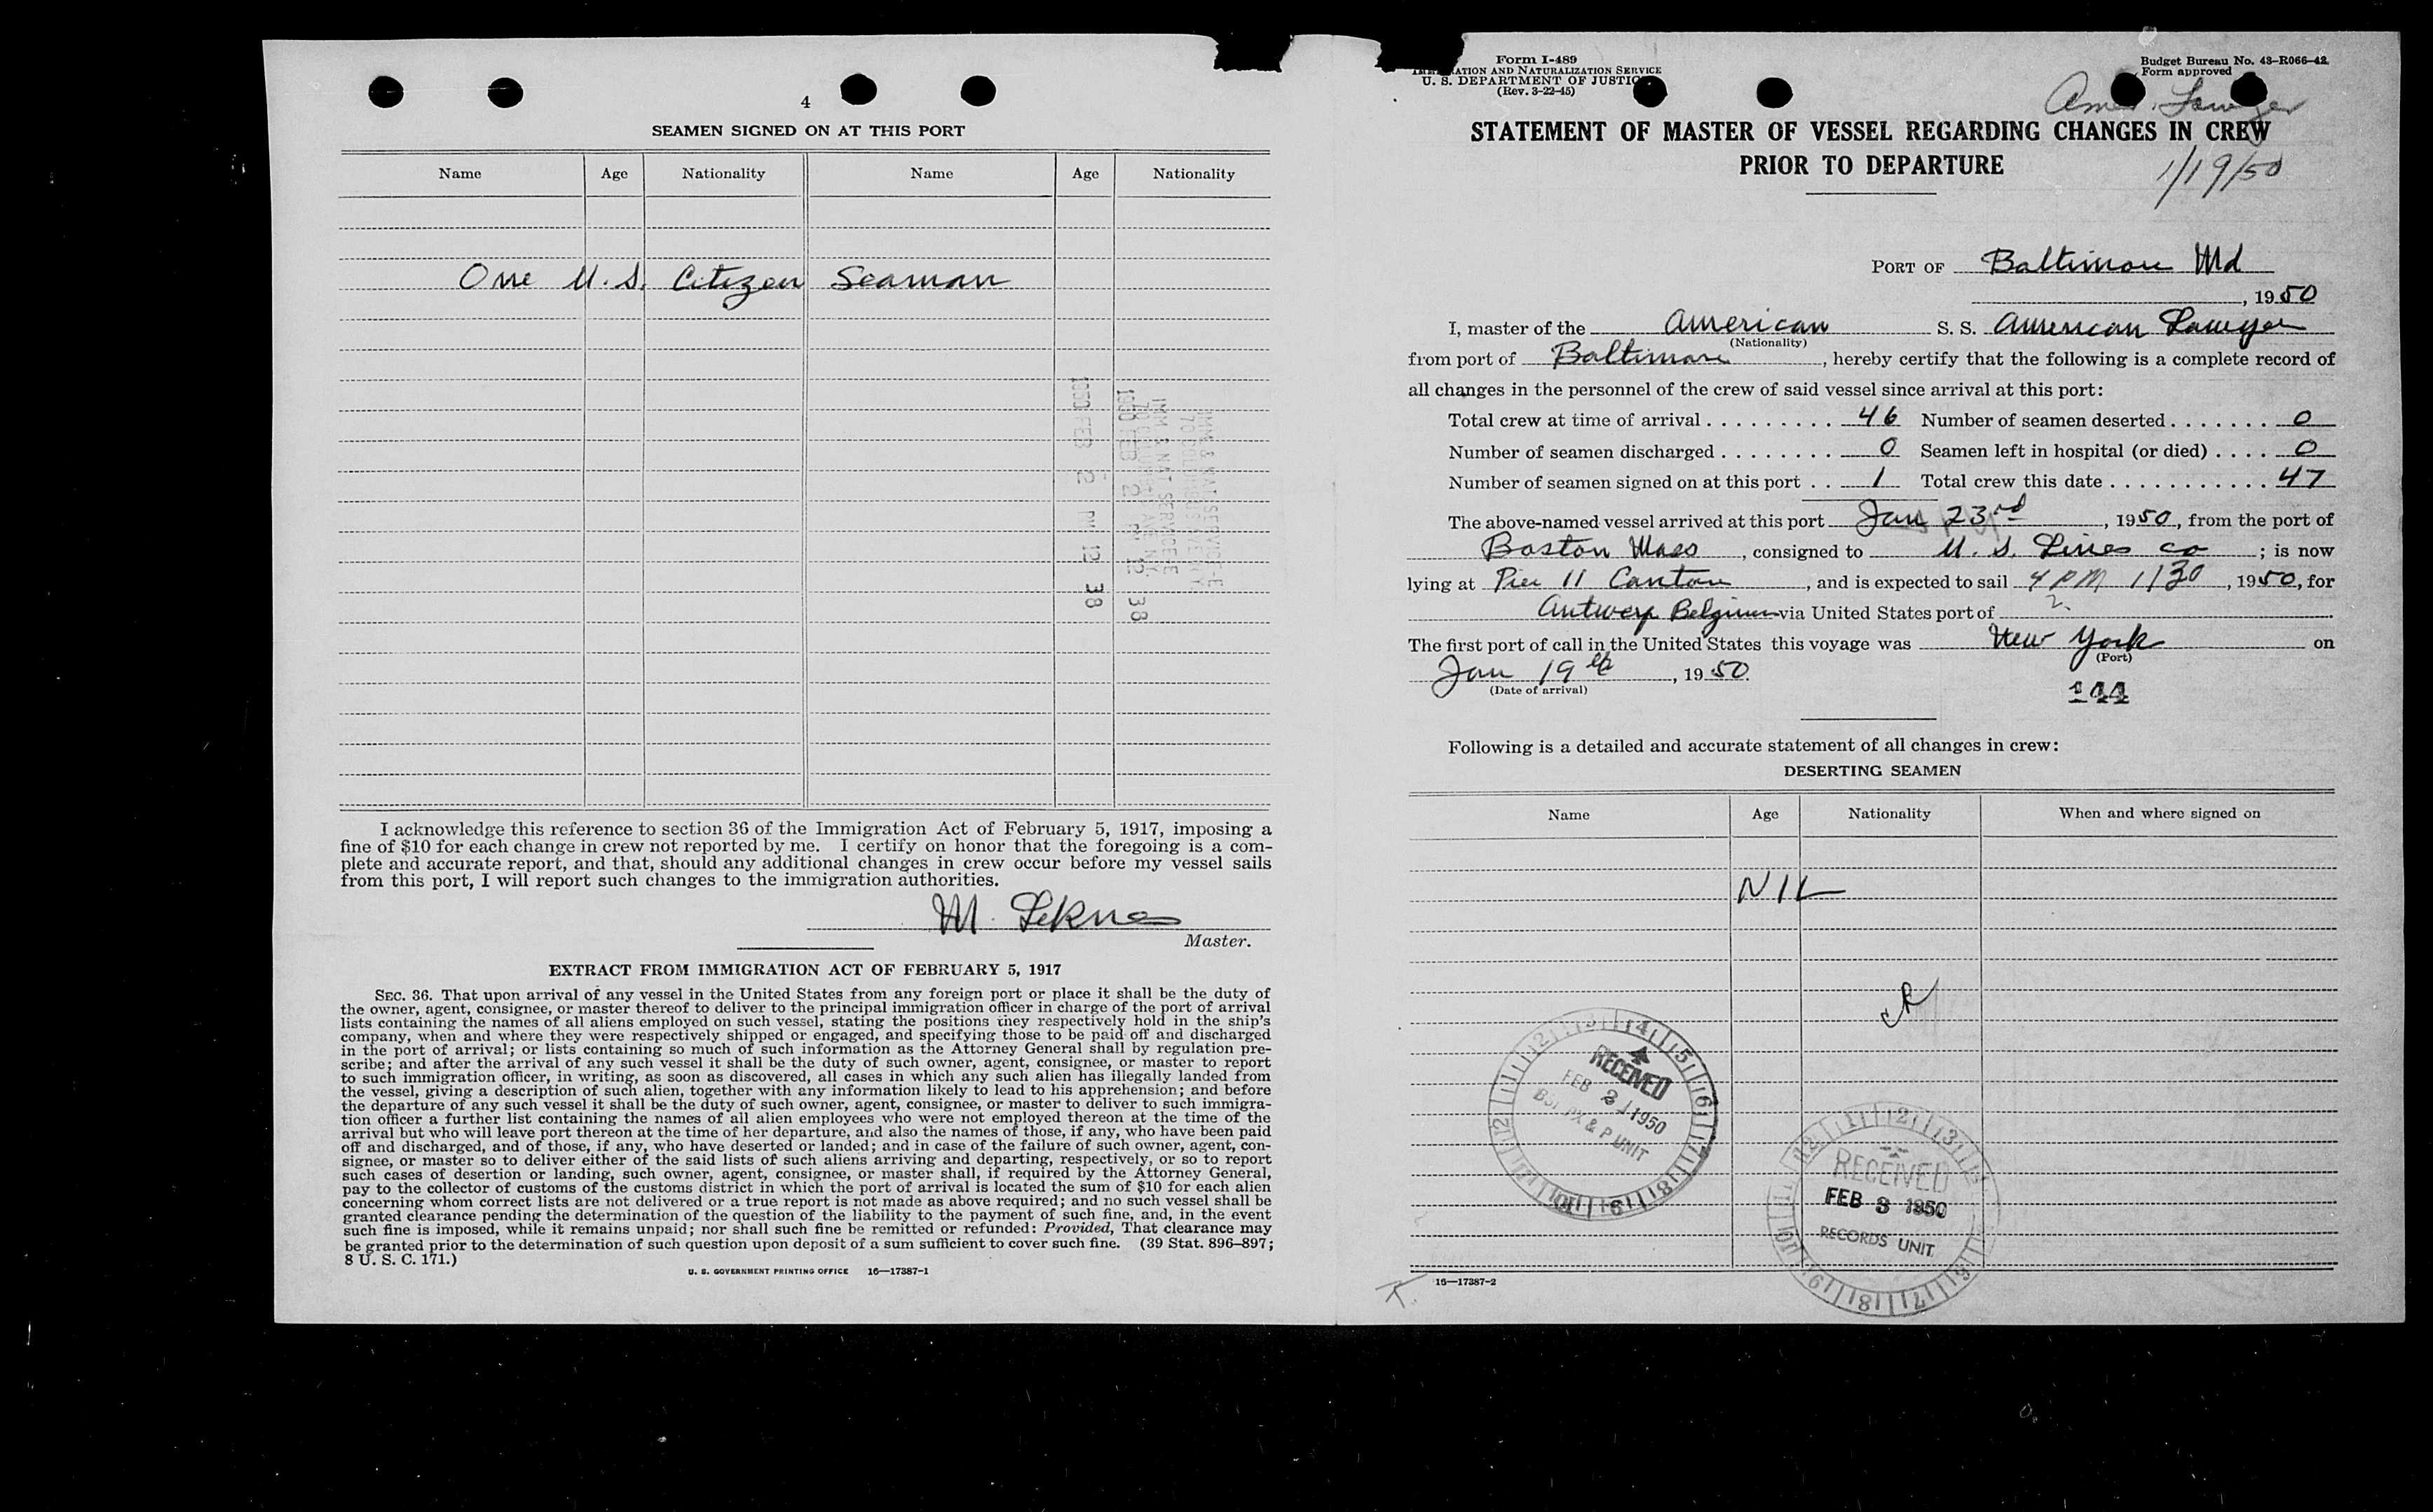 4
SEAMEN SIGNED ON AT THIS PORT
Name Age Nationality Name Age Nationality
One U.S. Citizen Seaman
1950 FEB 2 PM 12 38
1950 FEB 2 PM 12 38
IMM & NAT SERVICE
I acknowledge this reference to section 36 of the Immigration Act of February 5, 1917, imposing a
fine of $10 for each change in crew not reported by me. I certify on honor that the foregoing is a com-
plete and accurate report, and that, should any additional changes in crew occur before my vessel sails
from this port, I will report such changes to the immigration authorities.
M.
Master.
EXTRACT FROM IMMIGRATION ACT OF FEBRUARY 5, 1917
SEC. 36. That upon arrival of any vessel in the United States from any foreign port or place it shall be the duty of
the owner, agent, consignee, or master thereof to deliver to the principal immigration officer in charge of the port of arrival
lists containing the names of all aliens employed on such vessel, stating the positions they respectively hold in the ship's
company, when and where they were respectively shipped or engaged, and specifying those to be paid off and discharged
in the port of arrival; or lists containing so much of such information as the Attorney General shall by regulation pre-
scribe; and after the arrival of any such vessel it shall be the duty of such owner, agent, consignee, or master to report
to such immigration officer, in writing, as soon as discovered, all cases in which any such alien has illegally landed from
the vessel, giving a description of such alien, together with any information likely to lead to his apprehension; and before
the departure of any such vessel it shall be the duty of such owner, agent, consignee, or master to deliver to such immigra-
tion officer a further list containing the names of all alien employees who were not employed thereon at the time of the
arrival but who will leave port thereon at the time of her departure, and also the names of those, if any, who have been paid
off and discharged, and of those, if any, who have deserted or landed; and in case of the failure of such owner, agent, con-
signee, or master so to deliver either of the said lists of such aliens arriving and departing, respectively, or so to report
such cases of desertion or landing, such owner, agent, consignee, or master shall, if required by the Attorney General,
pay to the collector of customs of the customs district in which the port of arrival is located the sum of $10 for each alien
concerning whom correct lists are not delivered or a true report is not made as above required; and no such vessel shall be
granted clearance pending the determination of the question of the liability to the payment of such fine, and, in the event
such fine is imposed, while it remains unpaid; nor shall such fine be remitted or refunded: Provided, That clearance may
be granted prior to the determination of such question upon deposit of a sum sufficient to cover such fine. (39 Stat. 896–897;
8 U. S. C. 171.)
U. S. GOVERNMENT PRINTING OFFICE 16—17387-1
Form I-489
IMMIGRATION AND NATURALIZATION SERVICE
U. S. DEPARTMENT OF JUSTICE
(Rev. 3-22-45)
Budget Bureau No. 43-R066-42.
Form approved
Amer. Lawyer
STATEMENT OF MASTER OF VESSEL REGARDING CHANGES IN CREW
PRIOR TO DEPARTURE
1/19/50
PORT OF Baltimore Md
, 1950
I, master of the American S. S. American Lawyer
(Nationality)
from port of Baltimore, hereby certify that the following is a complete record of
all changes in the personnel of the crew of said vessel since arrival at this port:
Total crew at time of arrival . . . . . . . . . 46 Number of seamen deserted . . . . . . . 0
Number of seamen discharged . . . . . . . . 0 Seamen left in hospital (or died) . . . . 0
Number of seamen signed on at this port . . 1 Total crew this date . . . . . . . . . . . 47
The above-named vessel arrived at this port Jan 23rd, 1950, from the port of
Boston Mass, consigned to U. S. Lines Co; is now
lying at Pier 11 Canton, and is expected to sail 4 PM 1/30, 1950, for
Antwerp Belgium via United States port of
The first port of call in the United States this voyage was New York on
(Port)
Jan 19th, 1950.
(Date of arrival)
144
Following is a detailed and accurate statement of all changes in crew:
DESERTING SEAMEN
Name Age Nationality When and where signed on
NIL
RECEIVED
FEB 2 1950
& P UNIT
RECEIVED
FEB 3 1950
RECORDS UNIT
16—17387-2